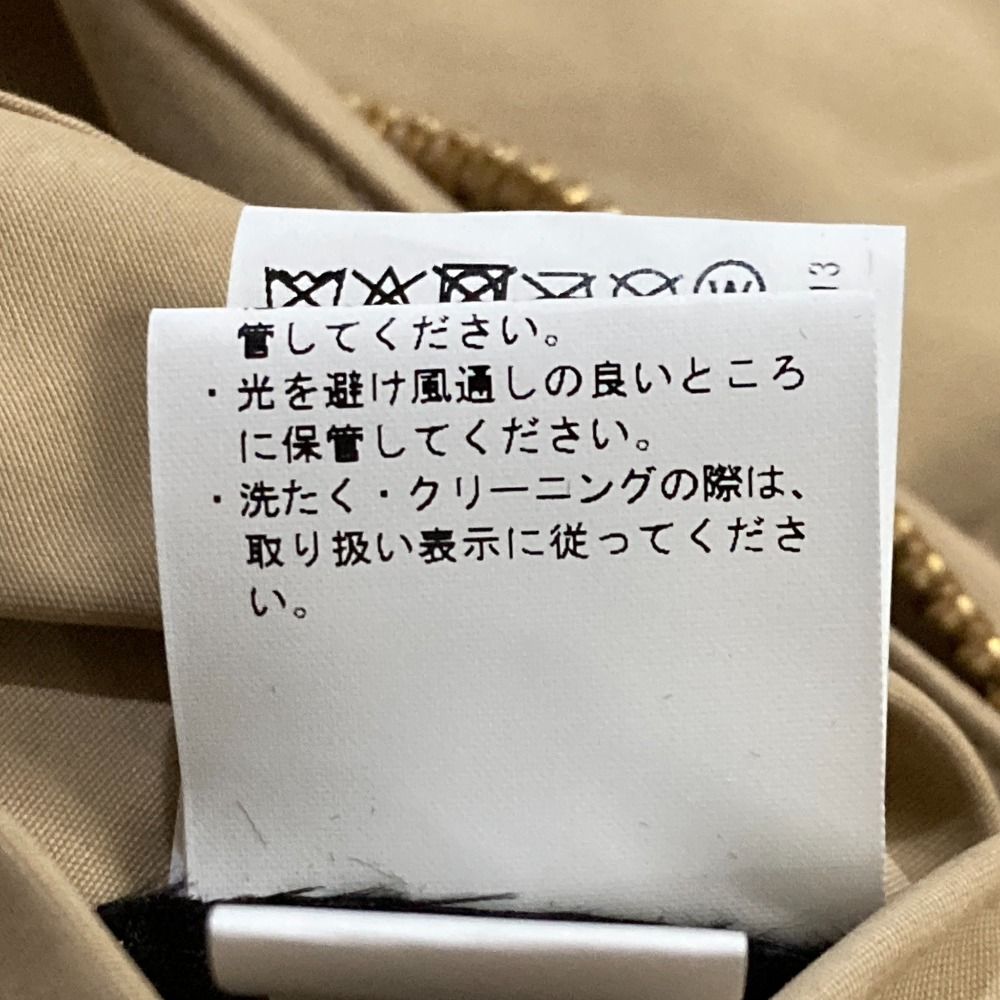 W
13
管してください。
・光を避け風通しの良いところ
に保管してください。
・洗たく・クリーニングの際は、
取り扱い表示に従ってくださ
い。